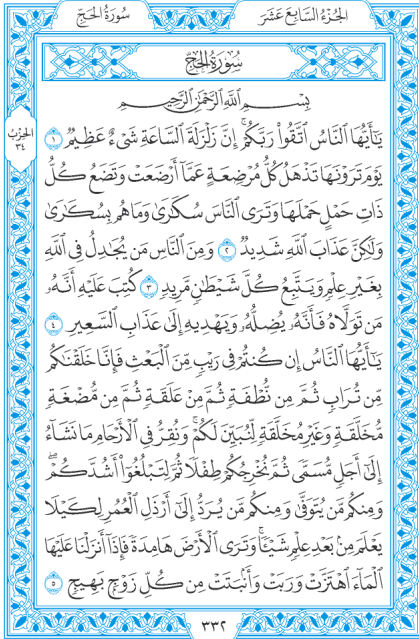 الجُزْءُ السَّابِعَ عَشَرَ
سُورَةُ الحَجِّ
سُورَةُ الحَجِّ
بِسْمِ اللَّهِ الرَّحْمَٰنِ الرَّحِيمِ
يَٰٓأَيُّهَا النَّاسُ اتَّقُوا۟ رَبَّكُمْ ۚ إِنَّ زَلْزَلَةَ السَّاعَةِ شَىْءٌ عَظِيمٌ ١
يَوْمَ تَرَوْنَهَا تَذْهَلُ كُلُّ مُرْضِعَةٍ عَمَّآ أَرْضَعَتْ وَتَضَعُ كُلُّ
ذَاتِ حَمْلٍ حَمْلَهَا وَتَرَى النَّاسَ سُكَٰرَىٰ وَمَا هُم بِسُكَٰرَىٰ
وَلَٰكِنَّ عَذَابَ اللَّهِ شَدِيدٌ ٢ وَمِنَ النَّاسِ مَن يُجَٰدِلُ فِى اللَّهِ
بِغَيْرِ عِلْمٍ وَيَتَّبِعُ كُلَّ شَيْطَٰنٍ مَّرِيدٍ ٣ كُتِبَ عَلَيْهِ أَنَّهُۥ
مَن تَوَلَّاهُ فَأَنَّهُۥ يُضِلُّهُۥ وَيَهْدِيهِ إِلَىٰ عَذَابِ السَّعِيرِ ٤
يَٰٓأَيُّهَا النَّاسُ إِن كُنتُمْ فِى رَيْبٍ مِّنَ الْبَعْثِ فَإِنَّا خَلَقْنَٰكُم
مِّن تُرَابٍ ثُمَّ مِن نُّطْفَةٍ ثُمَّ مِنْ عَلَقَةٍ ثُمَّ مِن مُّضْغَةٍ
مُّخَلَّقَةٍ وَغَيْرِ مُخَلَّقَةٍ لِّنُبَيِّنَ لَكُمْ ۚ وَنُقِرُّ فِى الْأَرْحَامِ مَا نَشَآءُ
إِلَىٰٓ أَجَلٍ مُّسَمًّى ثُمَّ نُخْرِجُكُمْ طِفْلًا ثُمَّ لِتَبْلُغُوٓا۟ أَشُدَّكُمْ ۖ
وَمِنكُم مَّن يُتَوَفَّىٰ وَمِنكُم مَّن يُرَدُّ إِلَىٰٓ أَرْذَلِ الْعُمُرِ لِكَيْلَا
يَعْلَمَ مِنۢ بَعْدِ عِلْمٍ شَيْـًٔا ۚ وَتَرَى الْأَرْضَ هَامِدَةً فَإِذَآ أَنزَلْنَا عَلَيْهَا
الْمَآءَ اهْتَزَّتْ وَرَبَتْ وَأَنۢبَتَتْ مِن كُلِّ زَوْجٍۭ بَهِيجٍ ٥
الحِزْبُ
٣٤
٣٣٢